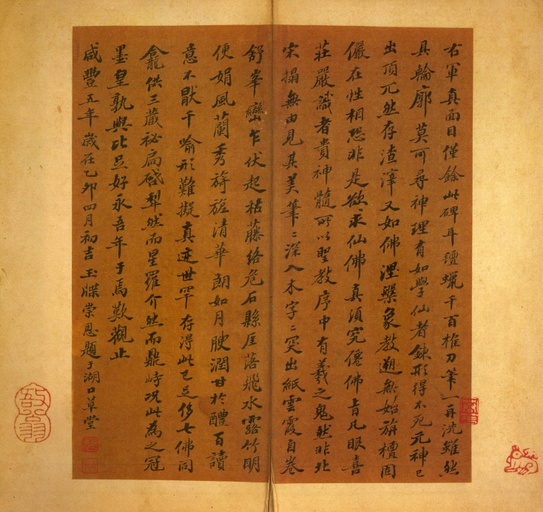 右軍真面目僅餘此碑耳氊蠟千百椎刀筆一再洗雖然
具輪廓莫可尋神理有如學仙者鍊形得不死元神已
出頂兀然存渣滓又如佛涅槃象教無始旃檀固
儼在性相恐非是欲求仙佛真須究僊佛旨凡眼喜
莊嚴識者貴神髓所以聖教序中有羲之鬼然非北
宋搨無由見其美筆〻深入木字〻突出紙雲霞自卷
舒峯巒乍伏起枯藤絡危石縣厓落飛水露竹明
便娟風蘭秀旖旎清華朗如月腴潤甘於醴百讀
意不猒千喻形難擬真迹世罕存得此已足侈七佛同
龕供三藏祕扃啓犁然而星羅介然而鼎峙況此為之冠
墨皇孰與比昷好永吾年于焉歎觀止
咸豐五年歲在乙卯四月初吉玉牒崇恩題于湖口草堂